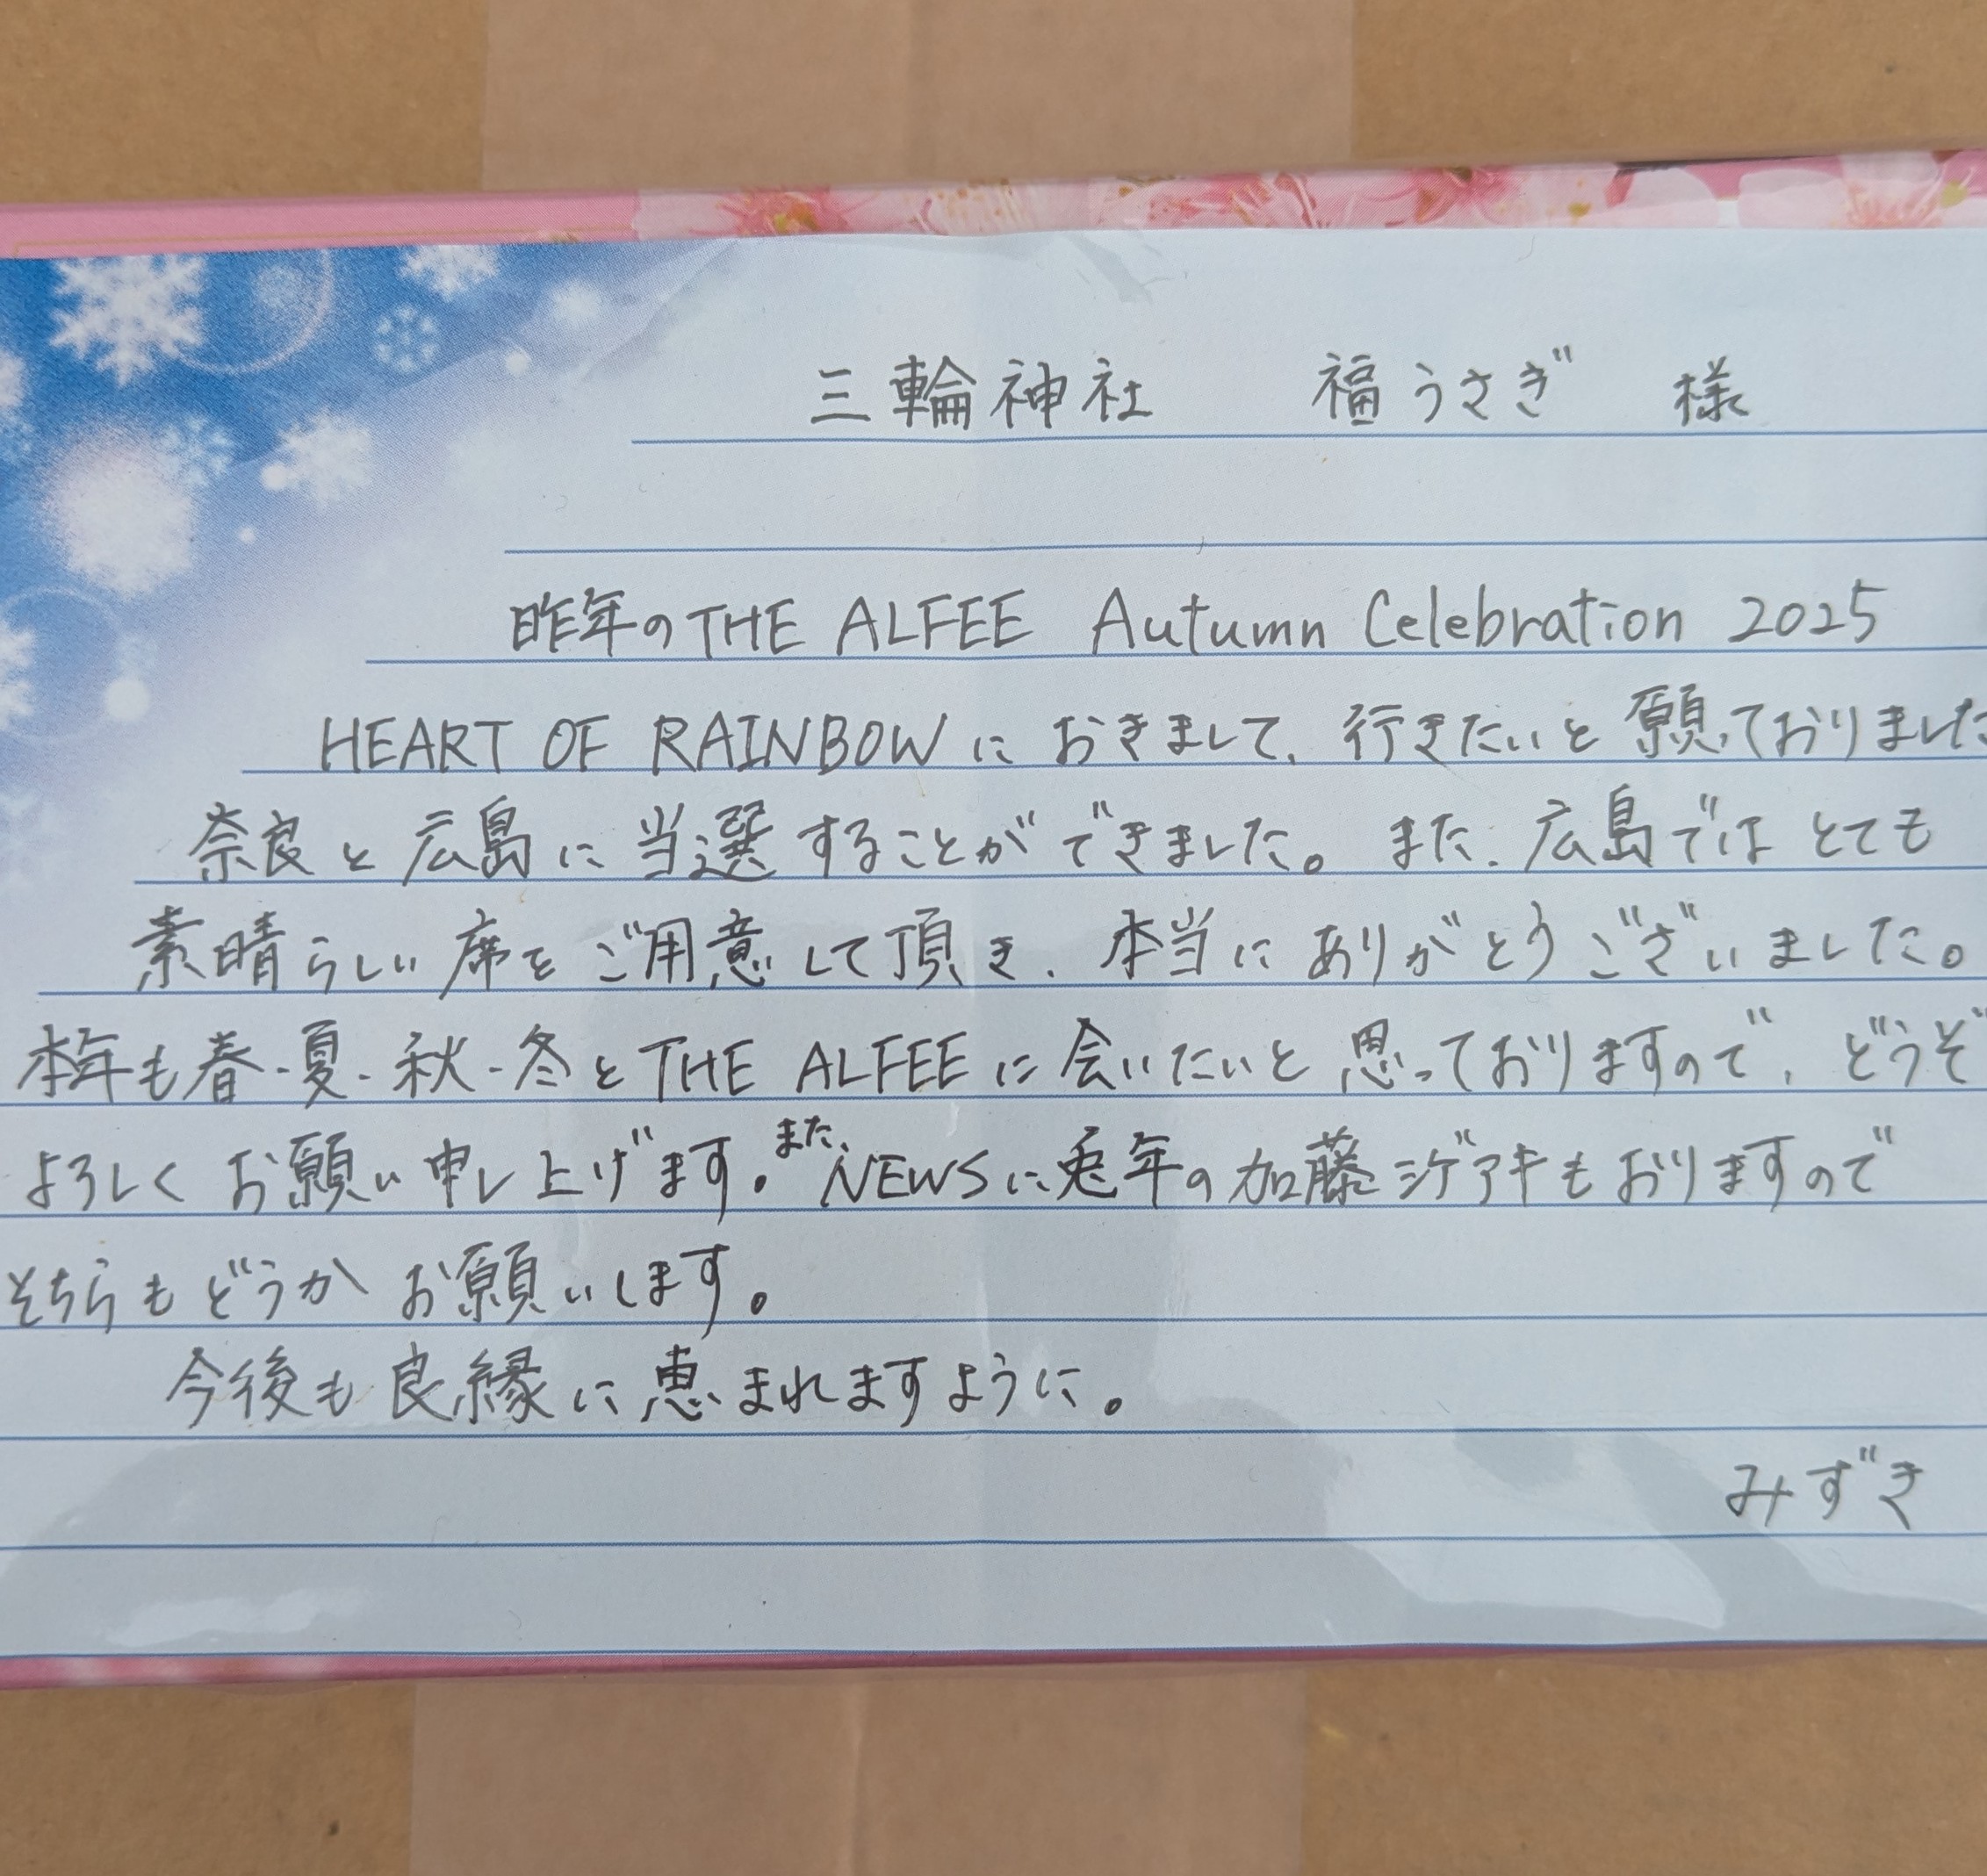 三輪神社 福うさぎ 様
昨年のTHE ALFEE Autumn Celebration 2025
HEART OF RAINBOW におきまして、行きたいと願っておりました
奈良と広島に当選することができました。また、広島ではとても
素晴らしい席をご用意して頂き、本当にありがとうございました。
本年も春・夏・秋・冬とTHE ALFEEに会いたいと思っておりますので、どうぞ
よろしくお願い申し上げます。また、NEWSに兎年の加藤シゲアキもおりますので
そちらもどうかお願いします。
今後も良縁に恵まれますように。
みずき